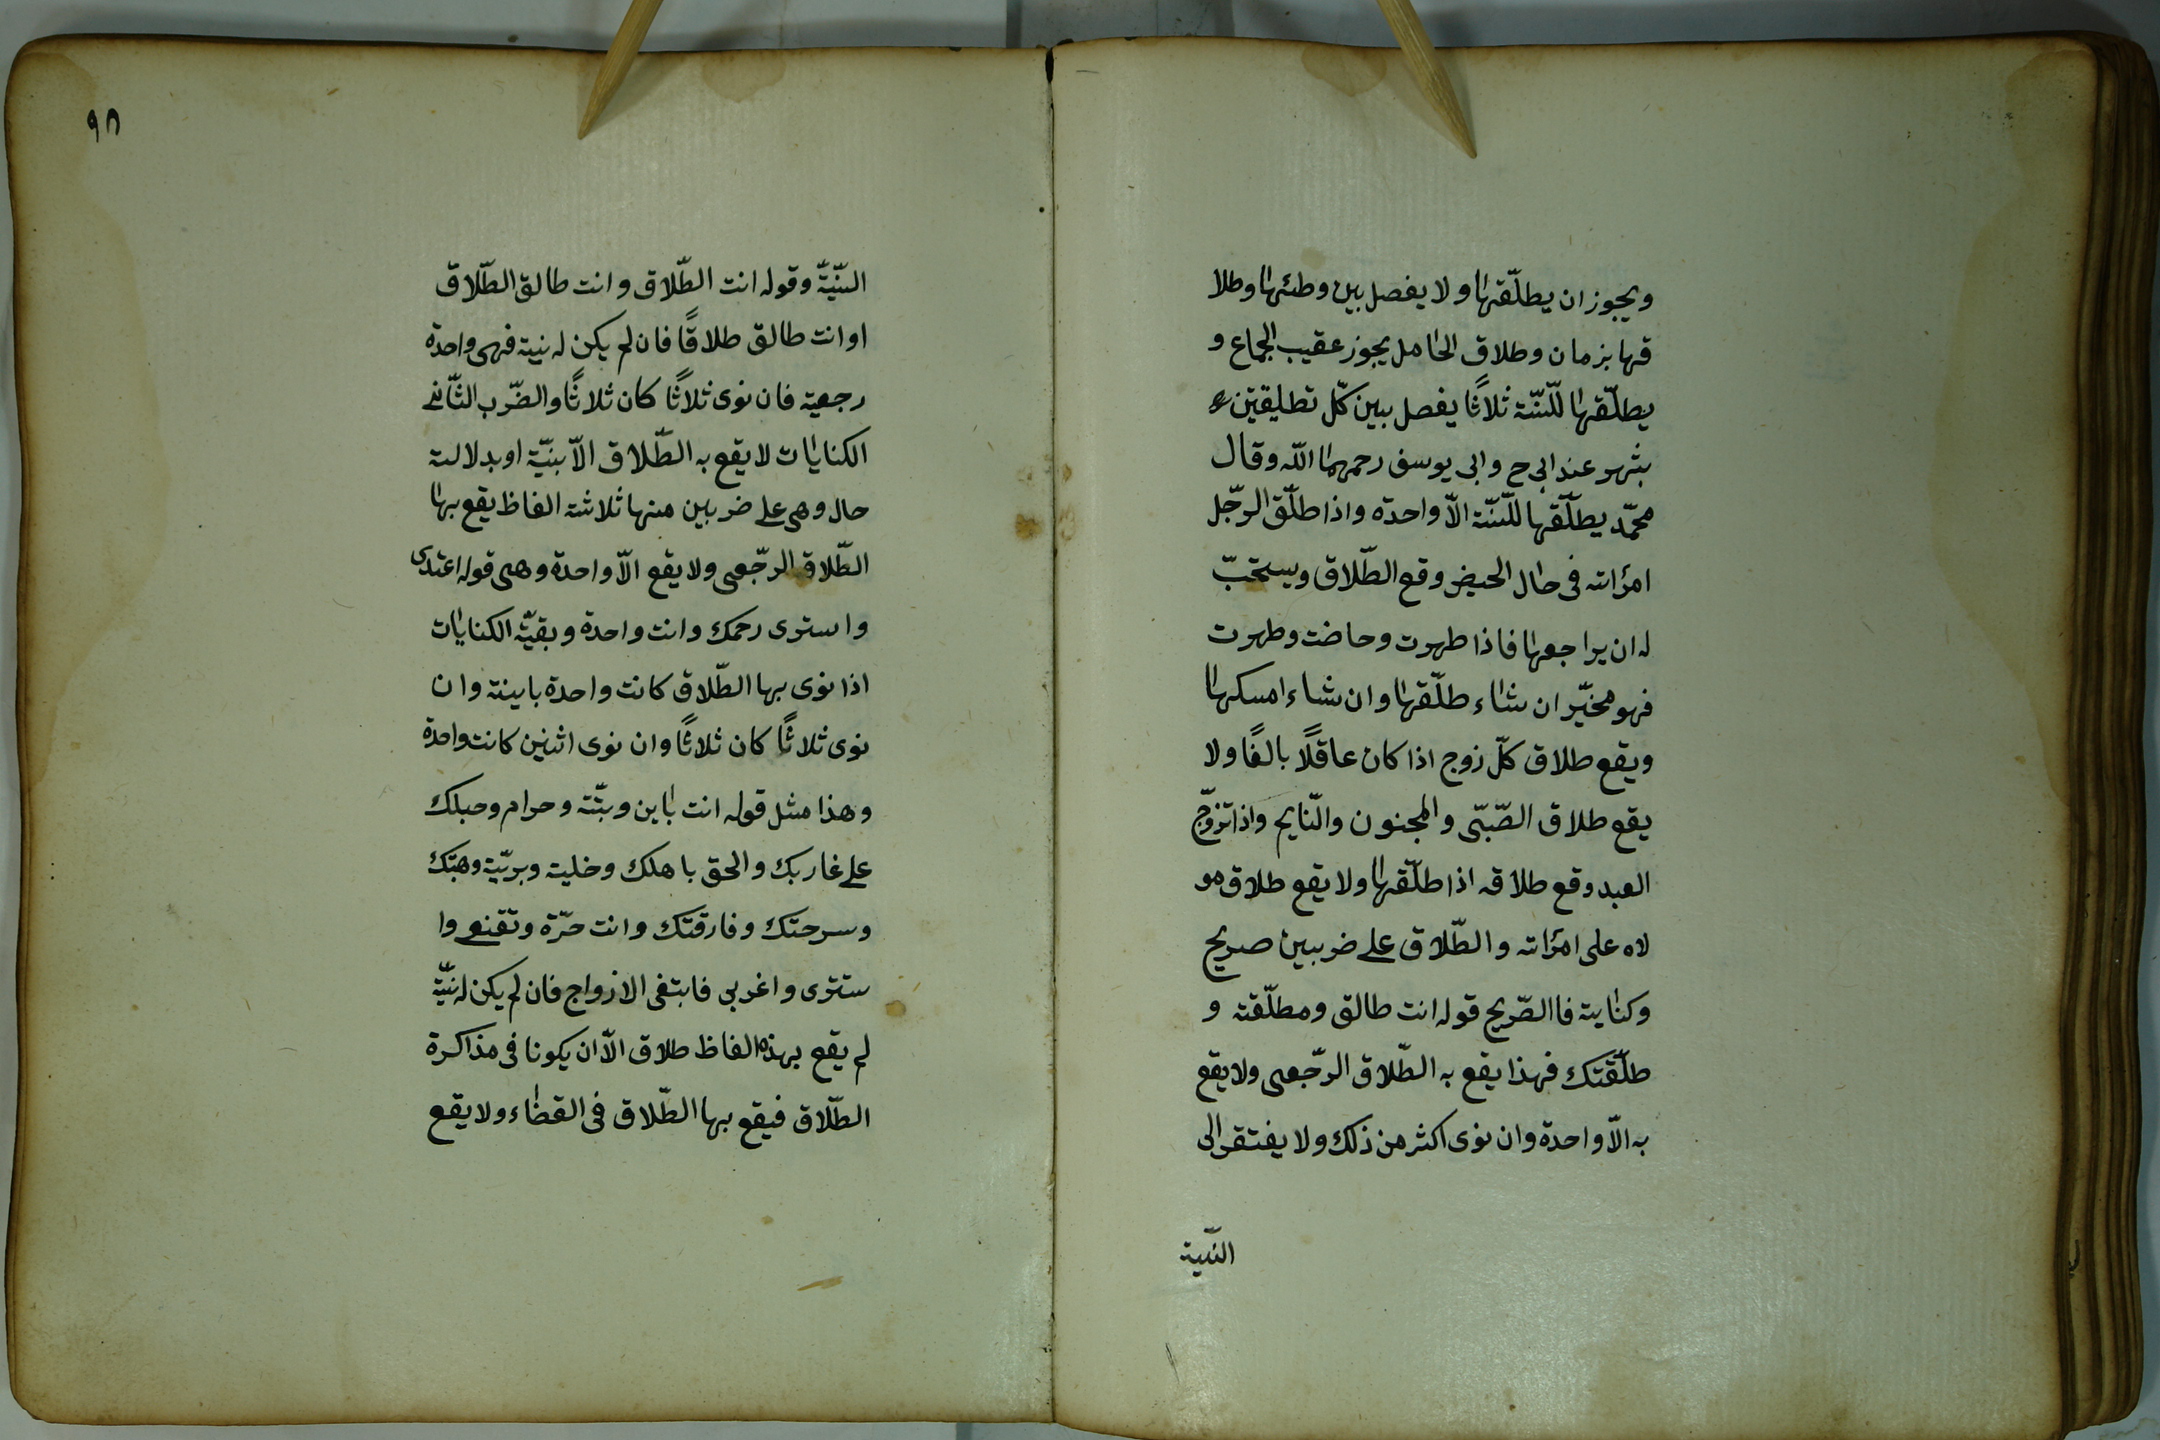 ويجوز ان يطلّقها ولا يفصل بين وطئها وطلا
قها بزمان وطلاق الحامل يجوز عقيب الجماع و
يطلّقها للسّنّة ثلاثًا يفصل بين كلّ تطليقتين
بشهر عند ابى ح وابى يوسف رحمهما اللّه وقال
محمّد يطلّقها للسّنّة الّا واحدة واذا طلّق الرجّل
امرأته فى حال الحيض وقع الطّلاق ويستحبّ
له ان يراجعها فاذا طهرت وحاضت وطهرت
فهو مخيّر ان شاء طلّقها وان شاء امسكها
ويقع طلاق كلّ زوج اذا كان عاقلًا بالغًا ولا
يقع طلاق الصّبّى والمجنون والنّايم واذا تزوّج
العبد وقع طلاقه اذا طلّقها ولا يقع طلاق مو
لاه على امرأته والطّلاق على ضربين صريح
وكناية فاالصّريح قوله انت طالق ومطلّقة و
طلّقتك فهذا يقع به الطّلاق الرجّعى ولا يقع
به الّا واحدة وان نوى اكثر من ذلك ولا يفتقر الى
النّية
٩٨
النّيّة وقوله انت الطّلاق وانت طالق الطّلاق
او انت طالق طلاقًا فان لم يكن له نية فهى واحدة
رجعية فان نوى ثلاثًا كان ثلاثًا والضّرب الثّانى
الكنايات لا يقع به الطّلاق الّا بنيّة او بدلالة
حال وهى على ضربين منها ثلاثة الفاظ يقع بها
الطّلاق الرجّعى ولا يقع الّا واحدة وهى قوله اعتدى
واسترى رحمك وانت واحدة وبقيّة الكنايات
اذا نوى بها الطّلاق كانت واحدة باينة وان
نوى ثلاثًا كان ثلاثًا وان نوى اثنين كانت واحدة
وهذا مثل قوله انت باين وبتّة وحرام وحبلك
على غاربك والحق باهلك وخلية وبريّة وهبتك
وسرحتك وفارقتك وانت حرّة وتقنعى وا
ستترى واغربى فابتغى الازواج فان لم يكن له نيّة
لم يقع بهذه الفاظ طلاق الّا ان يكونا فى مذاكرة
الطّلاق فيقع بها الطّلاق فى القضاء ولا يقع